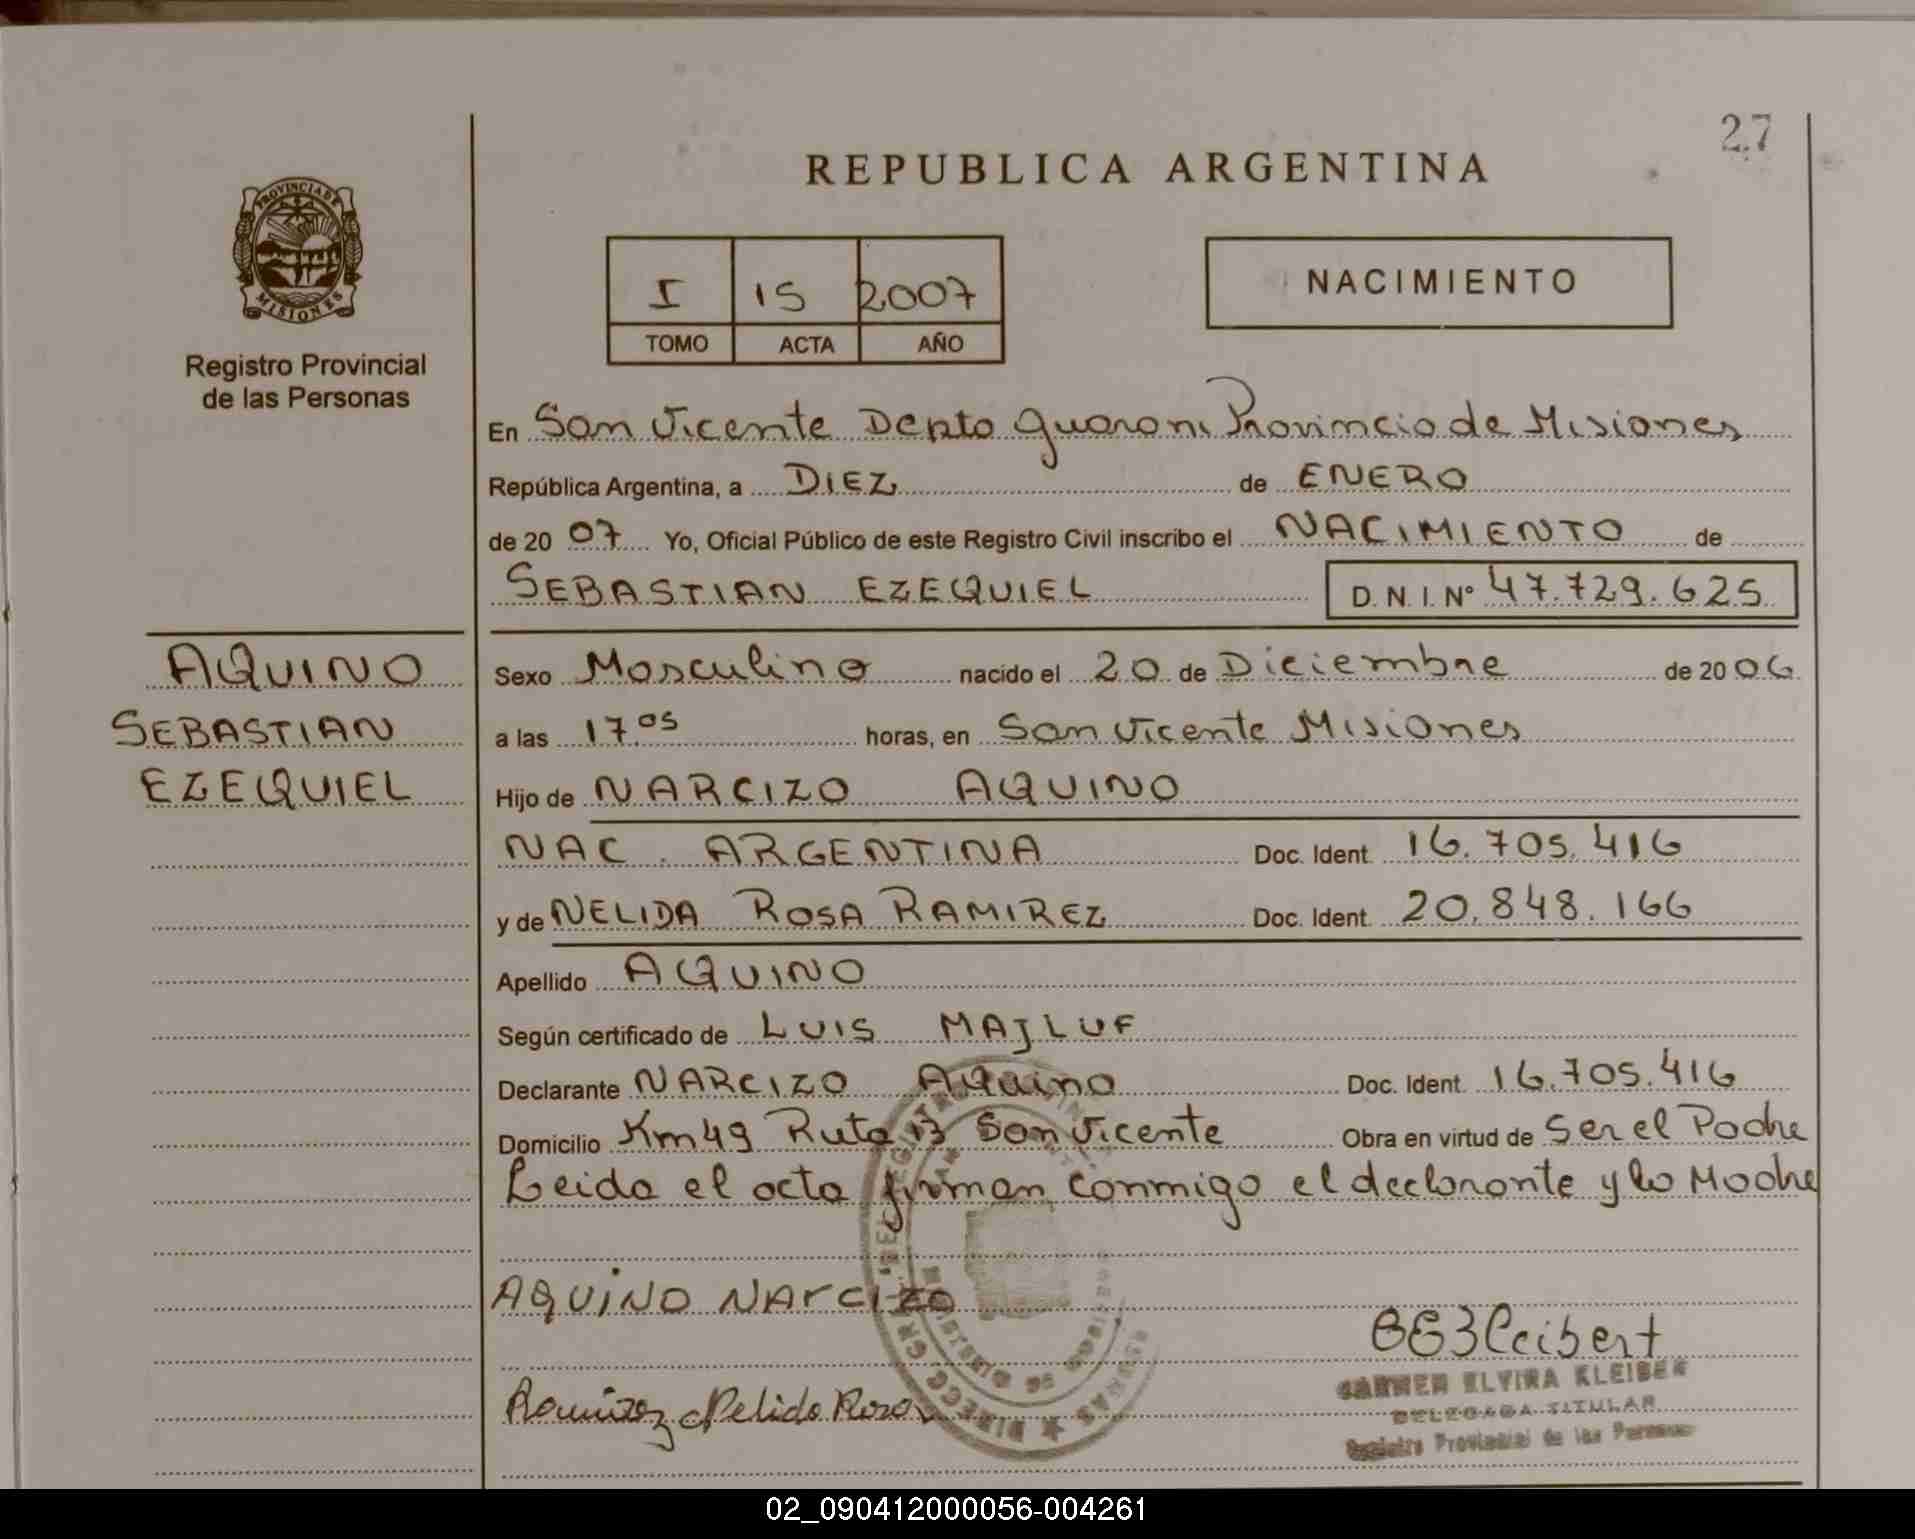 27
REPUBLICA ARGENTINA
PROVINCIA DE
MISIONES
Registro Provincial
de las Personas
I 15 2007
TOMO ACTA AÑO
NACIMIENTO
En San Vicente Depto Guarani Provincia de Misiones
República Argentina, a DIEZ de ENERO
de 20 07 Yo, Oficial Público de este Registro Civil inscribo el NACIMIENTO de
SEBASTIAN EZEQUIEL D.N.I.Nº 47.729.625
AQUINO
SEBASTIAN
EZEQUIEL
Sexo Masculino nacido el 20 de Diciembre de 20 06
a las 17.05 horas, en San Vicente Misiones
Hijo de NARCIZO AQUINO
NAC. ARGENTINA Doc. Ident. 16.705.416
y de NELIDA ROSA RAMIREZ Doc. Ident. 20.848.166
Apellido AQUINO
Según certificado de LUIS MAJLUF
Declarante NARCIZO Aquino Doc. Ident. 16.705.416
Domicilio Km 49 Ruta 13 San Vicente Obra en virtud de Ser el Padre
Leida el acta firman conmigo el declarante y la Madre
AQUINO NARCIZO
Ramirez Nelida Rosa
CARMEN ELVIRA KLEIBER
DELEGADA TITULAR
Registro Provincial de las Personas
02_090412000056-004261